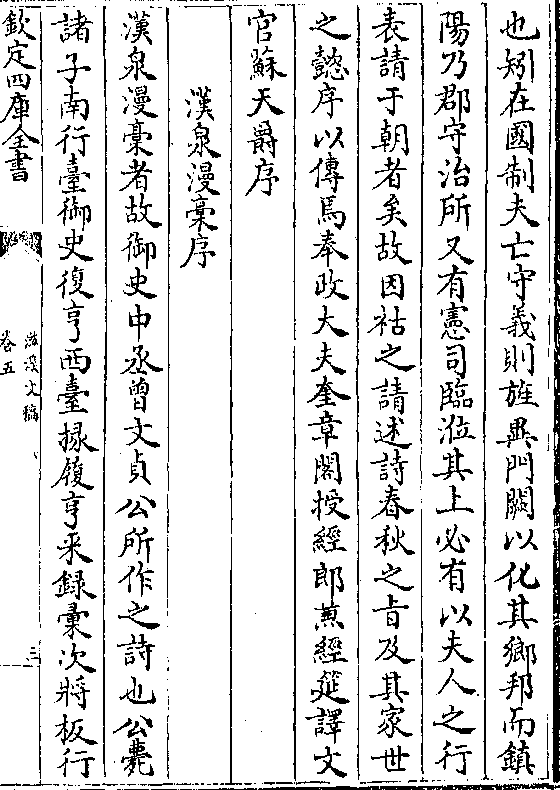 也矧在國制夫亡守義則旌畀門闕以化其鄉邦而鎮
陽乃郡守治所又有憲司臨涖其上必有以夫人之行
表請于朝者矣故因祜之請述詩春秋之旨及其家世
之懿序以傳焉奉政大夫奎章閣授經郎兼經筵譯文
官蘇天爵序
漢泉漫稾序
漢泉漫稾者故御史中丞曹文貞公所作之詩也公薨
諸子南行臺御史復亨西臺掾履亨采録彚次將板行
欽定四庫全書
滋溪文稿
卷五
三